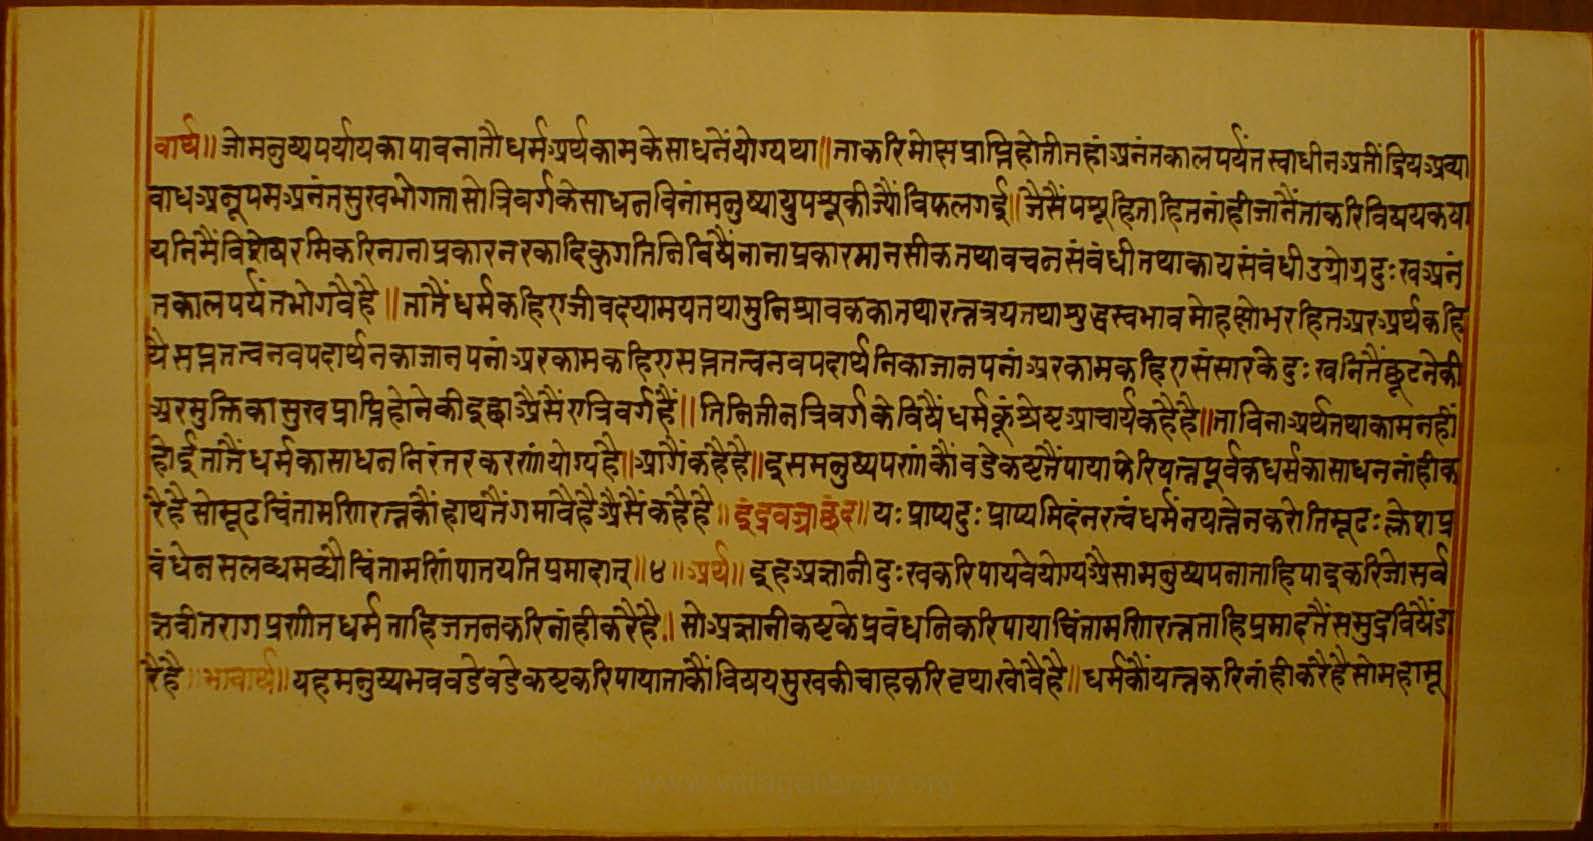 वार्थ॥ जो मनुष्य पर्याय का पावना तौ धर्म अर्थ काम के साधनें योग्य था॥ ता करि मोक्ष प्राप्ति होती तहां अनंत काल पर्यंत स्वाधीन अतींद्रिय अव्या
वाध अनूपम अनंत सुख भोगता सो त्रिवर्ग के साधन विनां मनुष्यायु पशू की ज्यौं विफल गई॥ जैसैं पशू हिताहित नांही जानैं ता करि विषय कषा
यनि मैं विशेष रमि करि नाना प्रकार नरकादि कुगतिनि विषैं नाना प्रकार मानसीक तथा वचन संबंधी तथा काय संबंधी उग्रोग्र दुःख अनं
त काल पर्यंत भोगवै है॥ तातैं धर्म कहिए जीव दयामय तथा मुनि श्रावक का तथा रत्नत्रय तथा शुद्ध स्वभाव मोह क्षोभ रहित अर अर्थ कहि
यै सप्त तत्व नव पदार्थन का जानपनां अर काम कहिए सप्त तत्व नव पदार्थनि का जानपनां अर काम कहिए संसार के दुःखनि तैं छूटने की
अर मुक्ति का सुख प्राप्ति होने की इछा अैसैं ए त्रिवर्ग हैं॥ तिनि तीन त्रिवर्ग के विषैं धर्म कूं श्रेष्ट आचार्य कहै है॥ ता विना अर्थ तथा काम नहीं
होई तातैं धर्म का साधन निरंतर करणां योग्य है॥ आगैं कहै है॥ इस मनुष्यपणां कौं वडे कष्ट तैं पाया फेरि यत्न पूर्वक धर्म का साधन नांही क
रै है सो मूढ चिंतामणि रत्न कौं हाथ तैं गमावै है अैसैं कहै है॥ इंद्रवज्रा छंद॥ यः प्राप्य दुःप्राप्यमिदं नरत्वं धर्मं न यत्नेन करोति मूढः क्लेशप्र
वंधेन स लब्धमब्धौ चिंतामणिं पातयति प्रमादात्॥४॥ अर्थ॥ इह अज्ञानी दुःख करि पायवे योग्य अैसा मनुष्यपना ताहि पाइ करि जो सर्व
ज्ञ वीतराग प्रणीत धर्म ताहि जतन करि नांही करै है॥ सो अज्ञानी कष्ट के प्रवंधनि करि पाया चिंतामणि रत्न ताहि प्रमाद तैं समुद्र विषैं डा
रै है॥ भावार्थ॥ यह मनुष्य भव वडे वडे कष्ट करि पाया ताकौं विषय सुख की चाह करि वृथा खोवै है॥ धर्म कौं यत्न करि नांही करै है सो महा मू